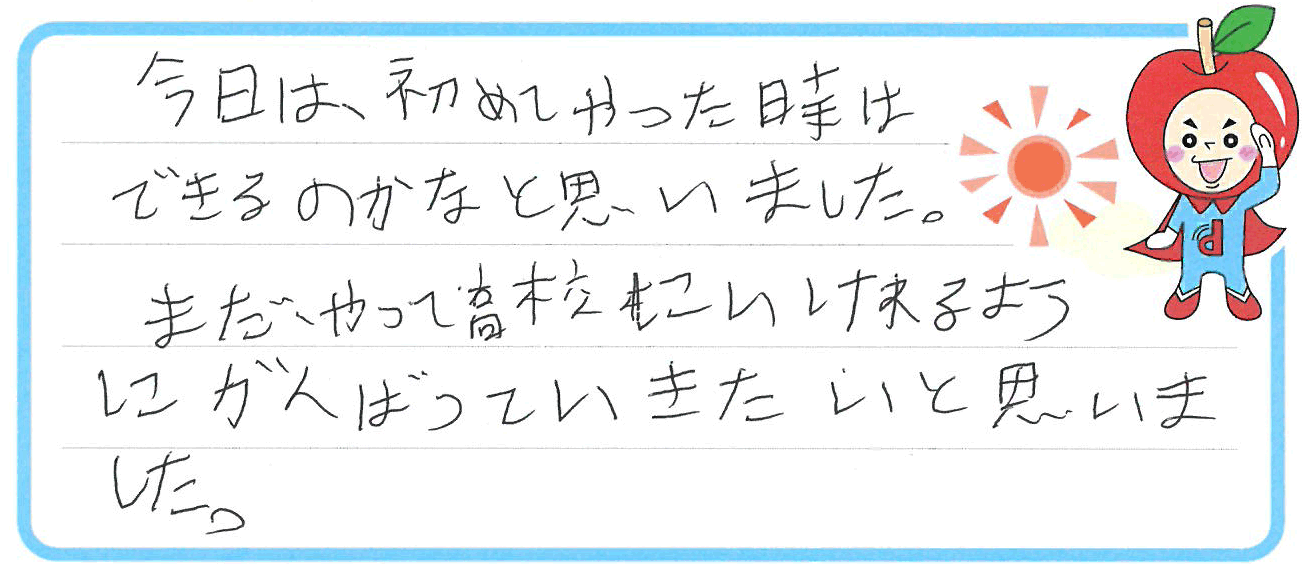 今日は、初めてやった時は
できるのかなと思いました。
まだやって高校にいけれるよう
にがんばっていきたいと思いま
した。
P